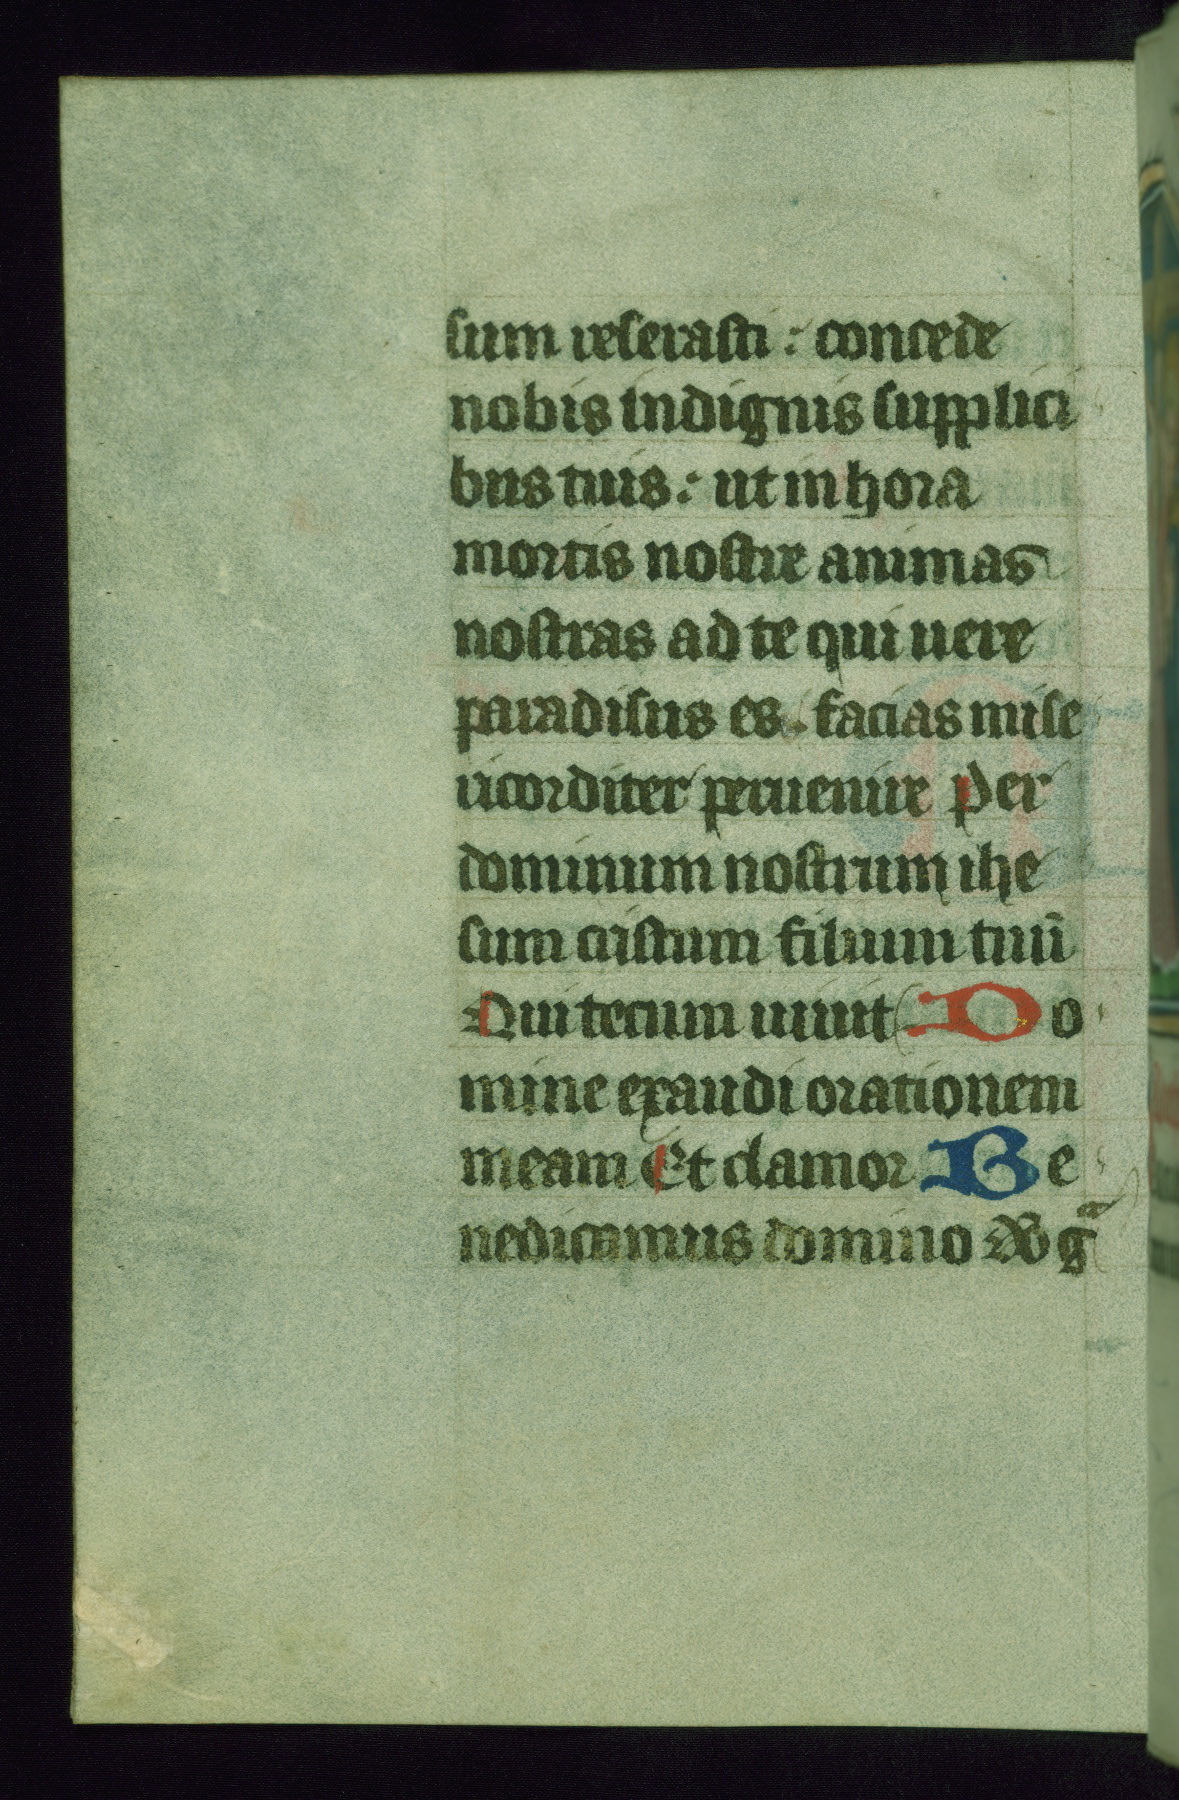 sum reserasti : concede
nobis indignis supplici
bus tuis : ut in hora
mortis nostre animas
nostras ad te qui uere
paradisus es . facias mise
ricorditer peruenire Per
dominum nostrum ihe
sum cristum filium tuū
Qui tecum uiuit Do
mine exaudi orationem
meam Et clamor Be
nedicamus domino Do gᵃ